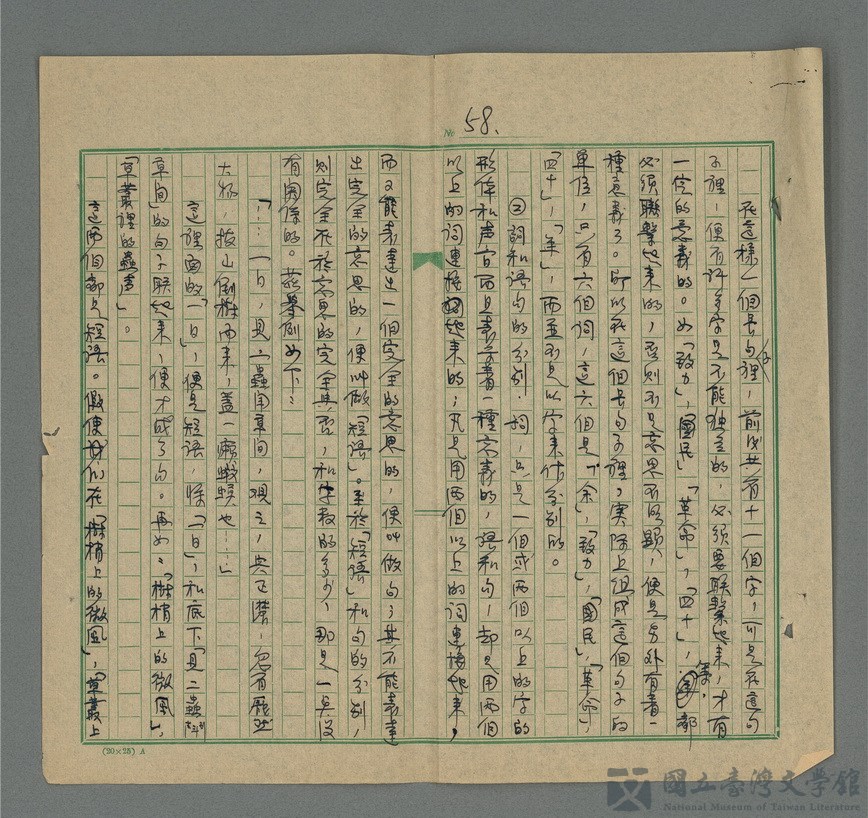 № 58.
在這樣一個長句裡，前後共有十一個字，可是在這句
子裡，便有許多字是不能独立的，必須要聯繫起來，才有
一定的意義的。如「致力」，「國民」，「革命」，「四十」，等，都
必須聯繫起來的，否則不是意思不明顯，便是另外有着一
種意義了。所以在這個長句子裡，実際上組成這個句子的
單位，只有六個詞，這六個是「余」，「致力」，「國民」，「革命」，
「四十」，「年」，而並不是以字來作分別的。
②詞和語句的分別．詞，只是一個或兩個以上的字的
形体和声音而是表示着一種意義的，語和句，却是用兩個
以上的詞連接起來的；凡是用兩個以上的詞連接起來，
而又能表達出一個完全的意思的，便叫做句；其不能表達
出完全的意思的，便叫做「短語」。至於「短語」和句的分別，
則完全在於意思的完全與否，和字数的多少，那是一点沒
有関係的。茲舉例如下：
「……一日，見二蟲鬪草間，观之，興正濃，忽有龐然
大物，拔山倒樹而來，蓋一癩蝦蟆也……」
這裡面的「一日」，便是短語，除「一日」，和底下「見二蟲鬪
草间」的句子联起來，便才成了句。再如：「樹梢上的微風」，
「草叢裡的蟲声」。
這兩個都是短语。假使我们在「樹梢上的微風」，「草叢上
(20×25) A
國立臺灣文學館
National Museum of Taiwan Literature